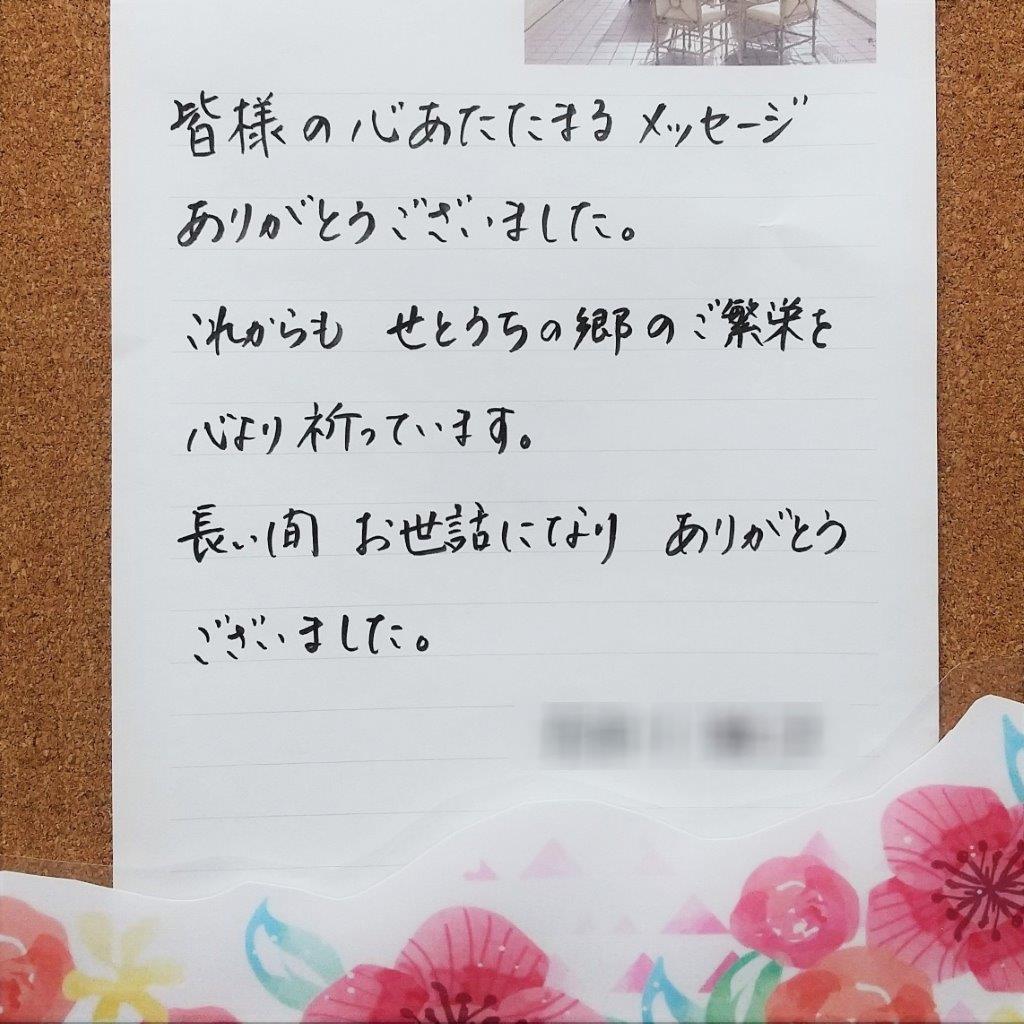 皆様の心あたたまるメッセージ
ありがとうございました。
これからも せとうちの郷のご繁栄を
心より祈っています。
長い間 お世話になり ありがとう
ございました。